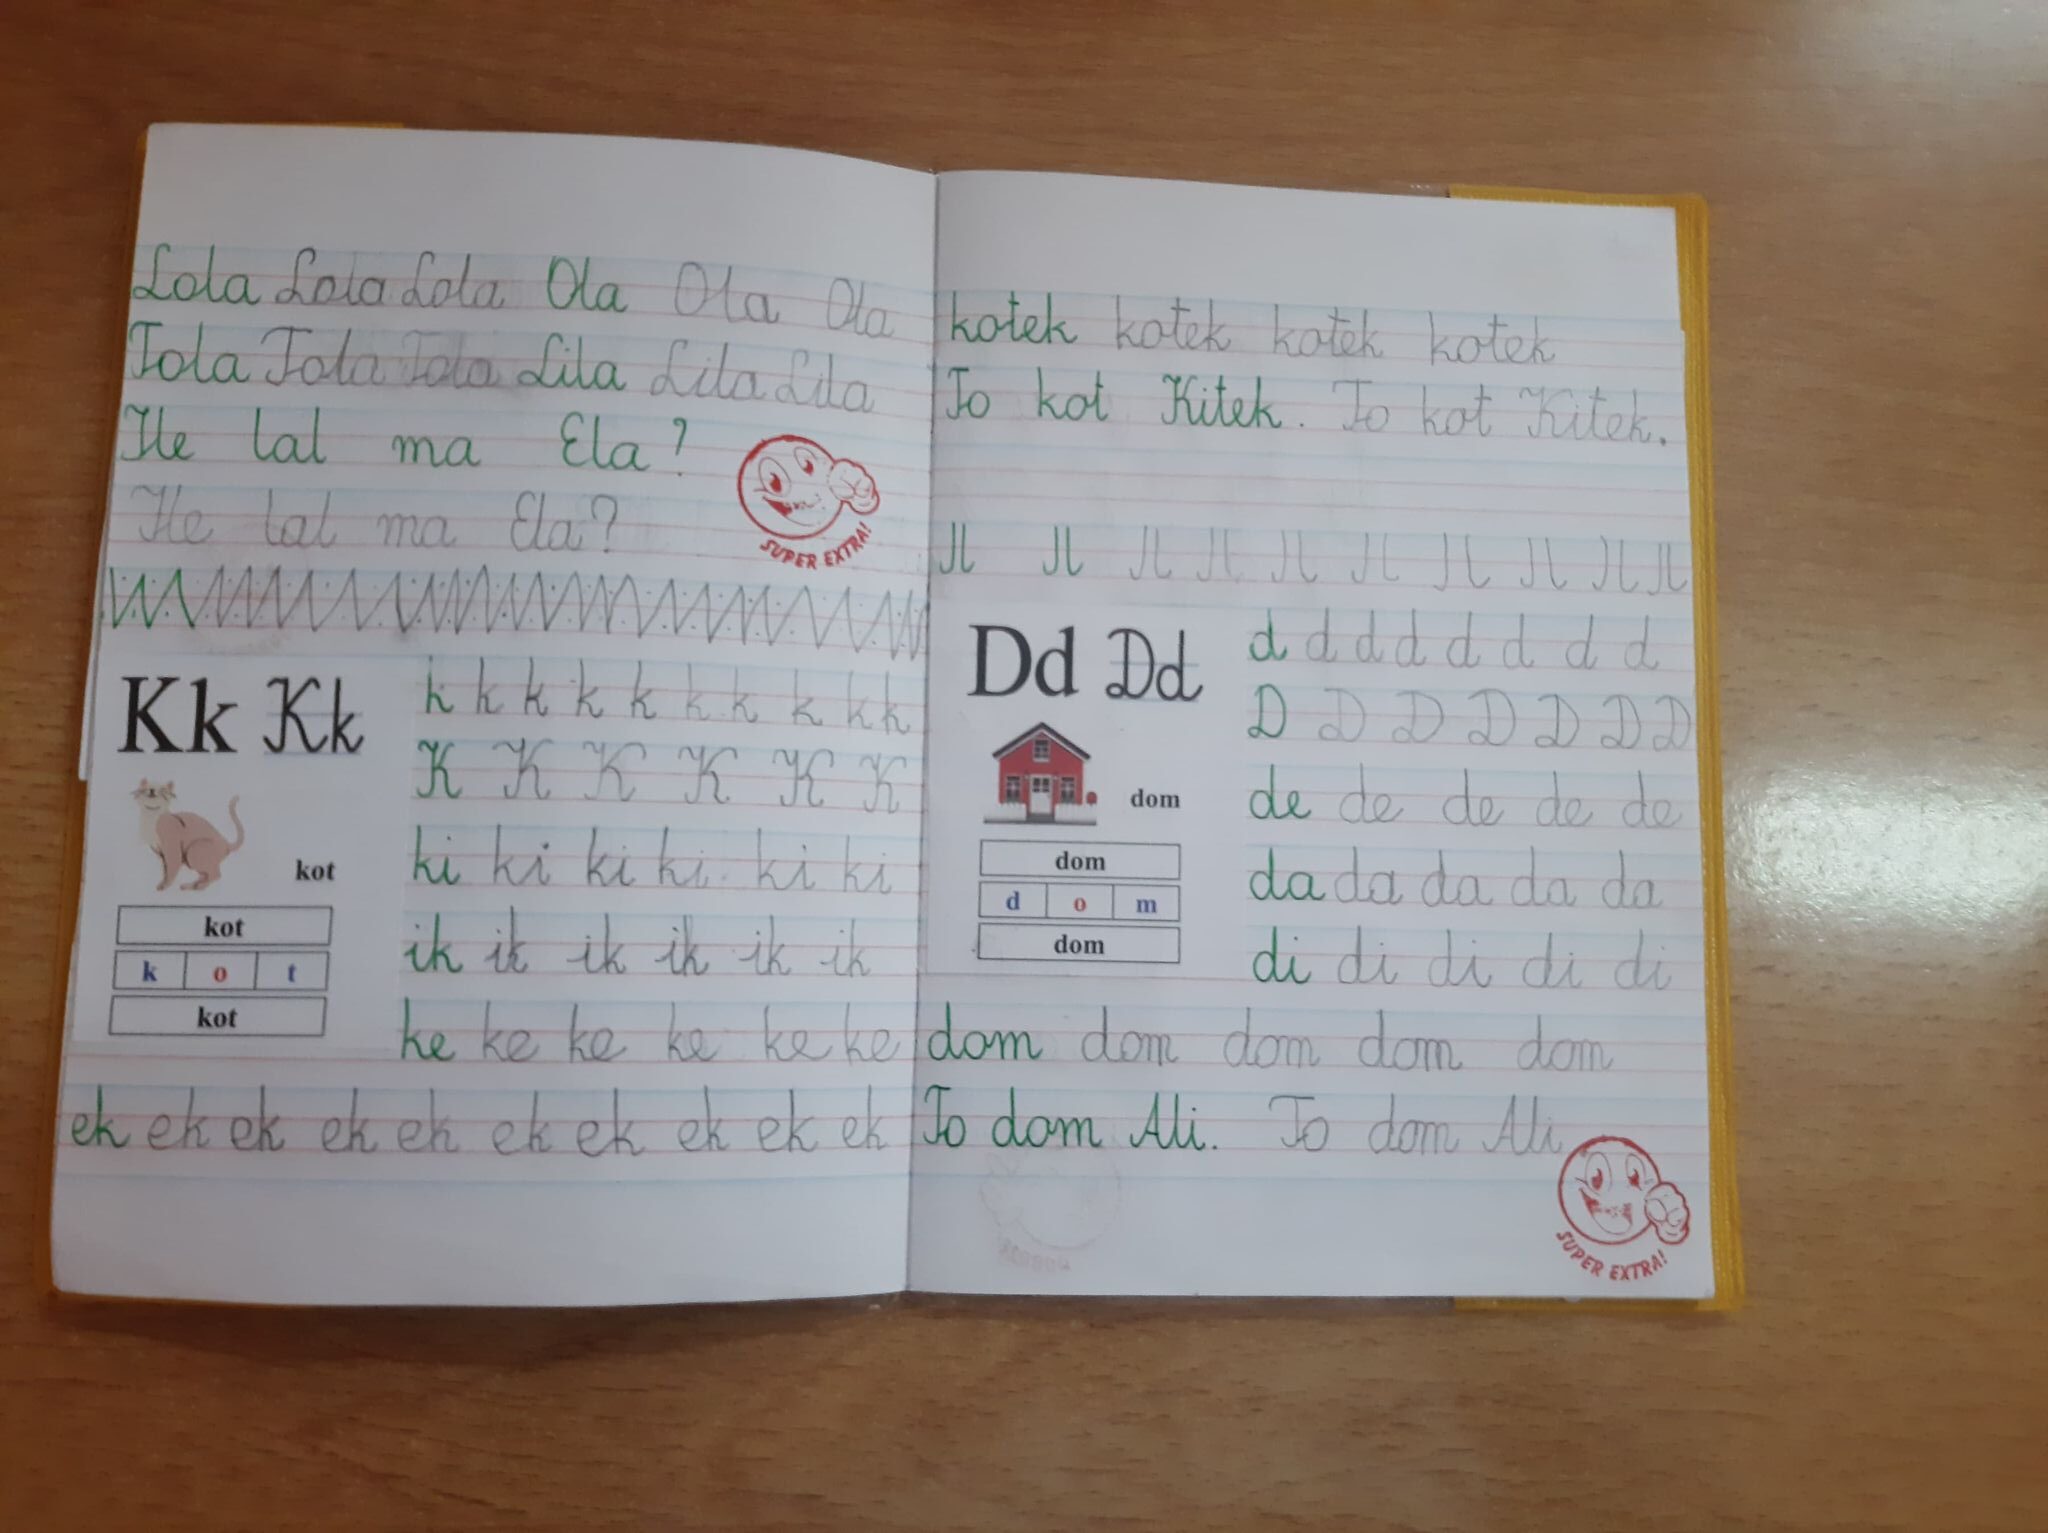 Lola Lola Lola Ola Ola Ola
Tola Tola Tola Lila Lila Lila
Ile lal ma Ela?
Ile lal ma Ela?
SUPER EXTRA!
Kk Kk
k k k k k k k k k k
K K K K K K
kot
ki ki ki ki ki ki
kot
k o t
kot
ik ik ik ik ik ik
ke ke ke ke ke ke
ek ek ek ek ek ek ek ek ek ek
kotek kotek kotek kotek
To kot Kitek. To kot Kitek.
Dd Dd
d d d d d d d d
D D D D D D D
dom
de de de de de
dom
d o m
dom
da da da da da
di di di di di
dom dom dom dom dom
To dom Ali. To dom Ali
SUPER EXTRA!